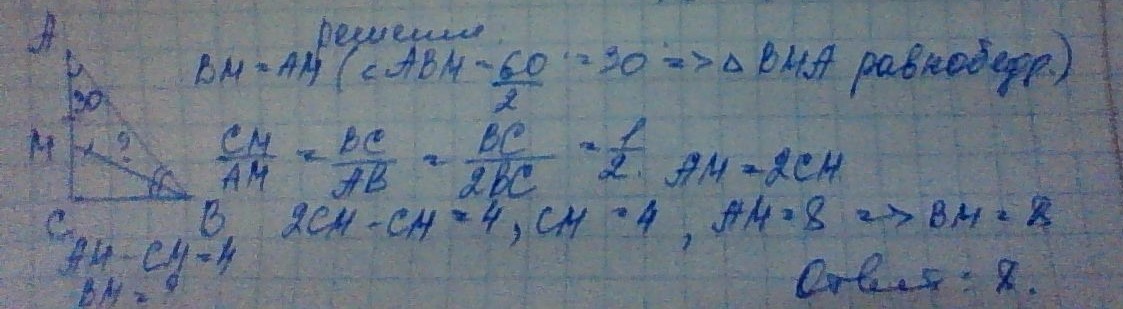 решение
A
BM = AM (∠ABM = 60/2 = 30 => △ BMA равнобедр.)
30
M ?
CM/AM = BC/AB = BC/2BC = 1/2. AM = 2CM
C B
2CM - CM = 4, CM = 4, AM = 8 => BM = 8
AM - CM = 4
BM = ?
Ответ: 8.